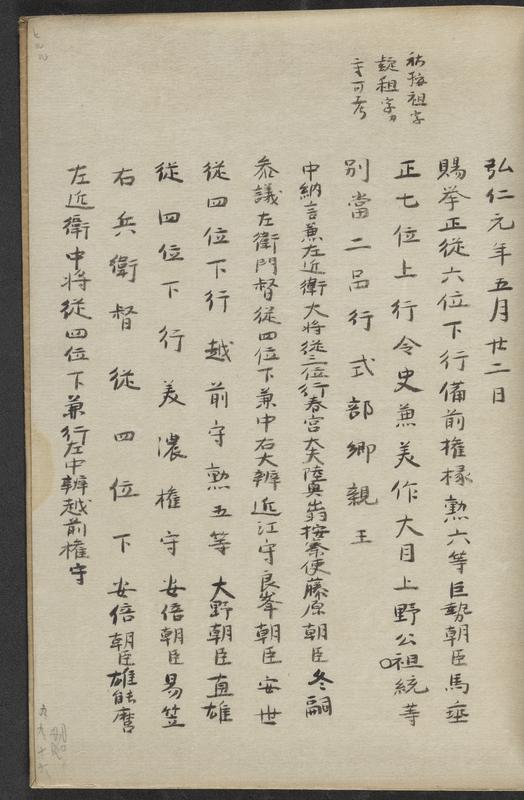 弘仁元年五月廿二日
賜挙正従六位下行備前権掾勲六等巨勢朝臣馬
正七位上行令史兼美作大目上野公祖統等
別當二品行式部卿親王
中納言兼左近衛大将従三位行春宮大夫陸奥出羽按察使藤原朝臣冬嗣
参議左衛門督従四位下兼中右大辨近江守良峯朝臣安世
従四位下行越前守勲五等大野朝臣直雄
従四位下行美濃権守安倍朝臣易笠
右兵衛督従四位下安倍朝臣雄能麿
左近衛中将従四位下兼行左中辨越前権守
祖字
祖字
可考